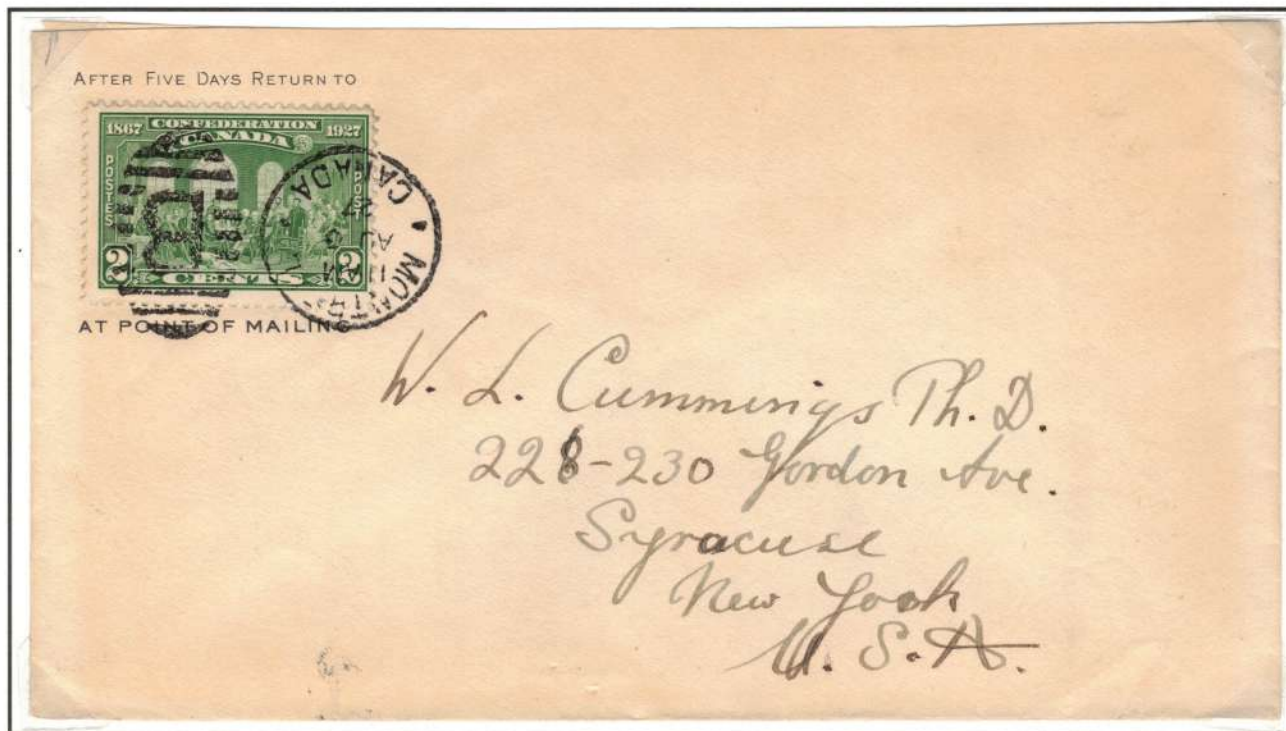 AFTER FIVE DAYS RETURN TO
1867 CONFEDERATION 1927
CANADA
POSTES POST
2 CENTS 2
MONTR
11 AM
AU
27
CANADA
AT POINT OF MAILING
W. L. Cummings Ph. D.
228-230 Gordon Ave.
Syracuse
New York
U. S. A.